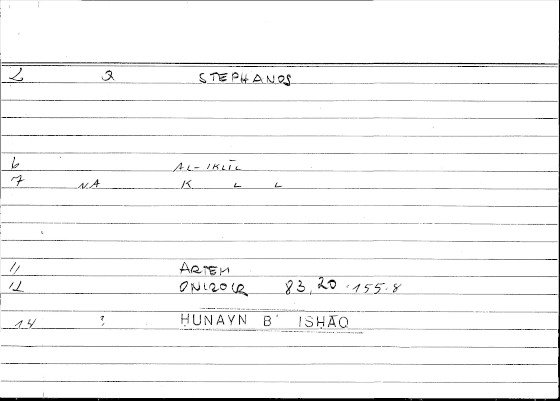 2 2 STEPHANOS
6 AL-IKLĪL
7 NA K L L
11 ARTEM
12 ONIROCR 83,20 · 155.8
14 ? HUNAYN B ISHĀQ